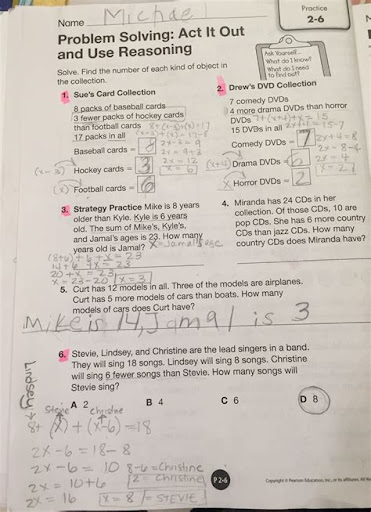 Name Michael
Practice
2-6
Problem Solving: Act It Out
and Use Reasoning
Ask Yourself...
What do I know?
What do I need
to find out?
Solve. Find the number of each kind of object in
the collection.
1. Sue's Card Collection
8 packs of baseball cards
3 fewer packs of hockey cards
than football cards 8+(x-3)+(x)=17
17 packs in all
Baseball cards = 8
2x = 9+3
2x = 12
x = 6
(x-3) Hockey cards = 3
(x) Football cards = 6
2. Drew's DVD Collection
7 comedy DVDs
4 more drama DVDs than horror
DVDs 7+(x+4)+x = 15
15 DVDs in all 2x+4=15-7
Comedy DVDs = 7
2x+4=8
2x = 8-4
(x+4) Drama DVDs = 6
2x = 4
x = 2
x Horror DVDs = 2
3. Strategy Practice Mike is 8 years
older than Kyle. Kyle is 6 years
old. The sum of Mike's, Kyle's,
and Jamal's ages is 23. How many
years old is Jamal? X=Jamal's age
(8+6)+6+x=23
14+6+x=23
20+x=23
x=23-20 x=3
4. Miranda has 24 CDs in her
collection. Of those CDs, 10 are
pop CDs. She has 6 more country
CDs than jazz CDs. How many
country CDs does Miranda have?
5. Curt has 12 models in all. Three of the models are airplanes.
Curt has 5 more models of cars than boats. How many
models of cars does Curt have?
Mike is 14, Jamal is 3
6. Stevie, Lindsey, and Christine are the lead singers in a band.
They will sing 18 songs. Lindsey will sing 8 songs. Christine
will sing 6 fewer songs than Stevie. How many songs will
Stevie sing?
A 2 B 4 C 6 D 8
Lindsey
Stevie Christine
8+ (x) + (x-6) = 18
2x-6 = 18-8
2x-6 = 10 8-6=Christine
2x = 10+6 2 = Christine
2x = 16 x = 8 = STEVIE
P 2-6